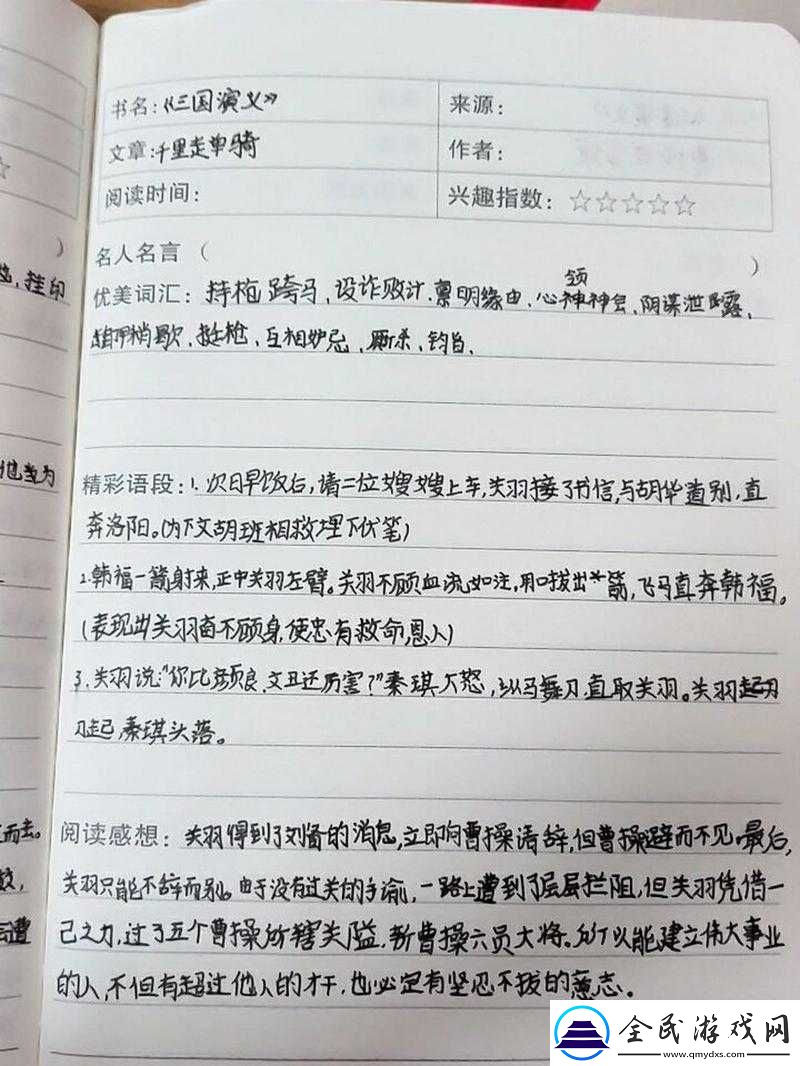 书名:《三国演义》 来源:
文章:千里走单骑 作者:
阅读时间: 兴趣指数: ☆☆☆☆☆
名人名言 ( )
优美词汇: 持枪跨马、设诈败计、禀明缘由、心领神会、阴谋泄露、
稍歇、挺枪、互相妒忌、厮杀、钧旨、
精彩语段: 1. 次日早饭后,请二位嫂嫂上车,关羽接了书信,与胡华道别,直
奔洛阳。(为下文胡班相救埋下伏笔)
2. 韩福一箭射来,正中关羽左臂。关羽不顾血流如注,用口拔出箭,飞马直奔韩福。
(表现出关羽奋不顾身,使忠有救命恩人)
3. 关羽说:"你比颜良、文丑还厉害?"秦琪大怒,纵马舞刀直取关羽。关羽起刀
刀起,秦琪头落。
阅读感想: 关羽得到了刘备的消息,立即向曹操请辞,但曹操避而不见。最后,
关羽只能不辞而别。由于没有过关的手谕,一路上遭到了层层拦阻,但关羽凭借一
己之力,过了五个曹操所辖关隘,斩曹操六员大将。所以能建立伟大事业
的人,不但有超过他人的才干,也必定有坚忍不拔的意志。
挂印
他当为
而去。
遭
全民游戏网
www.qmydxs.com